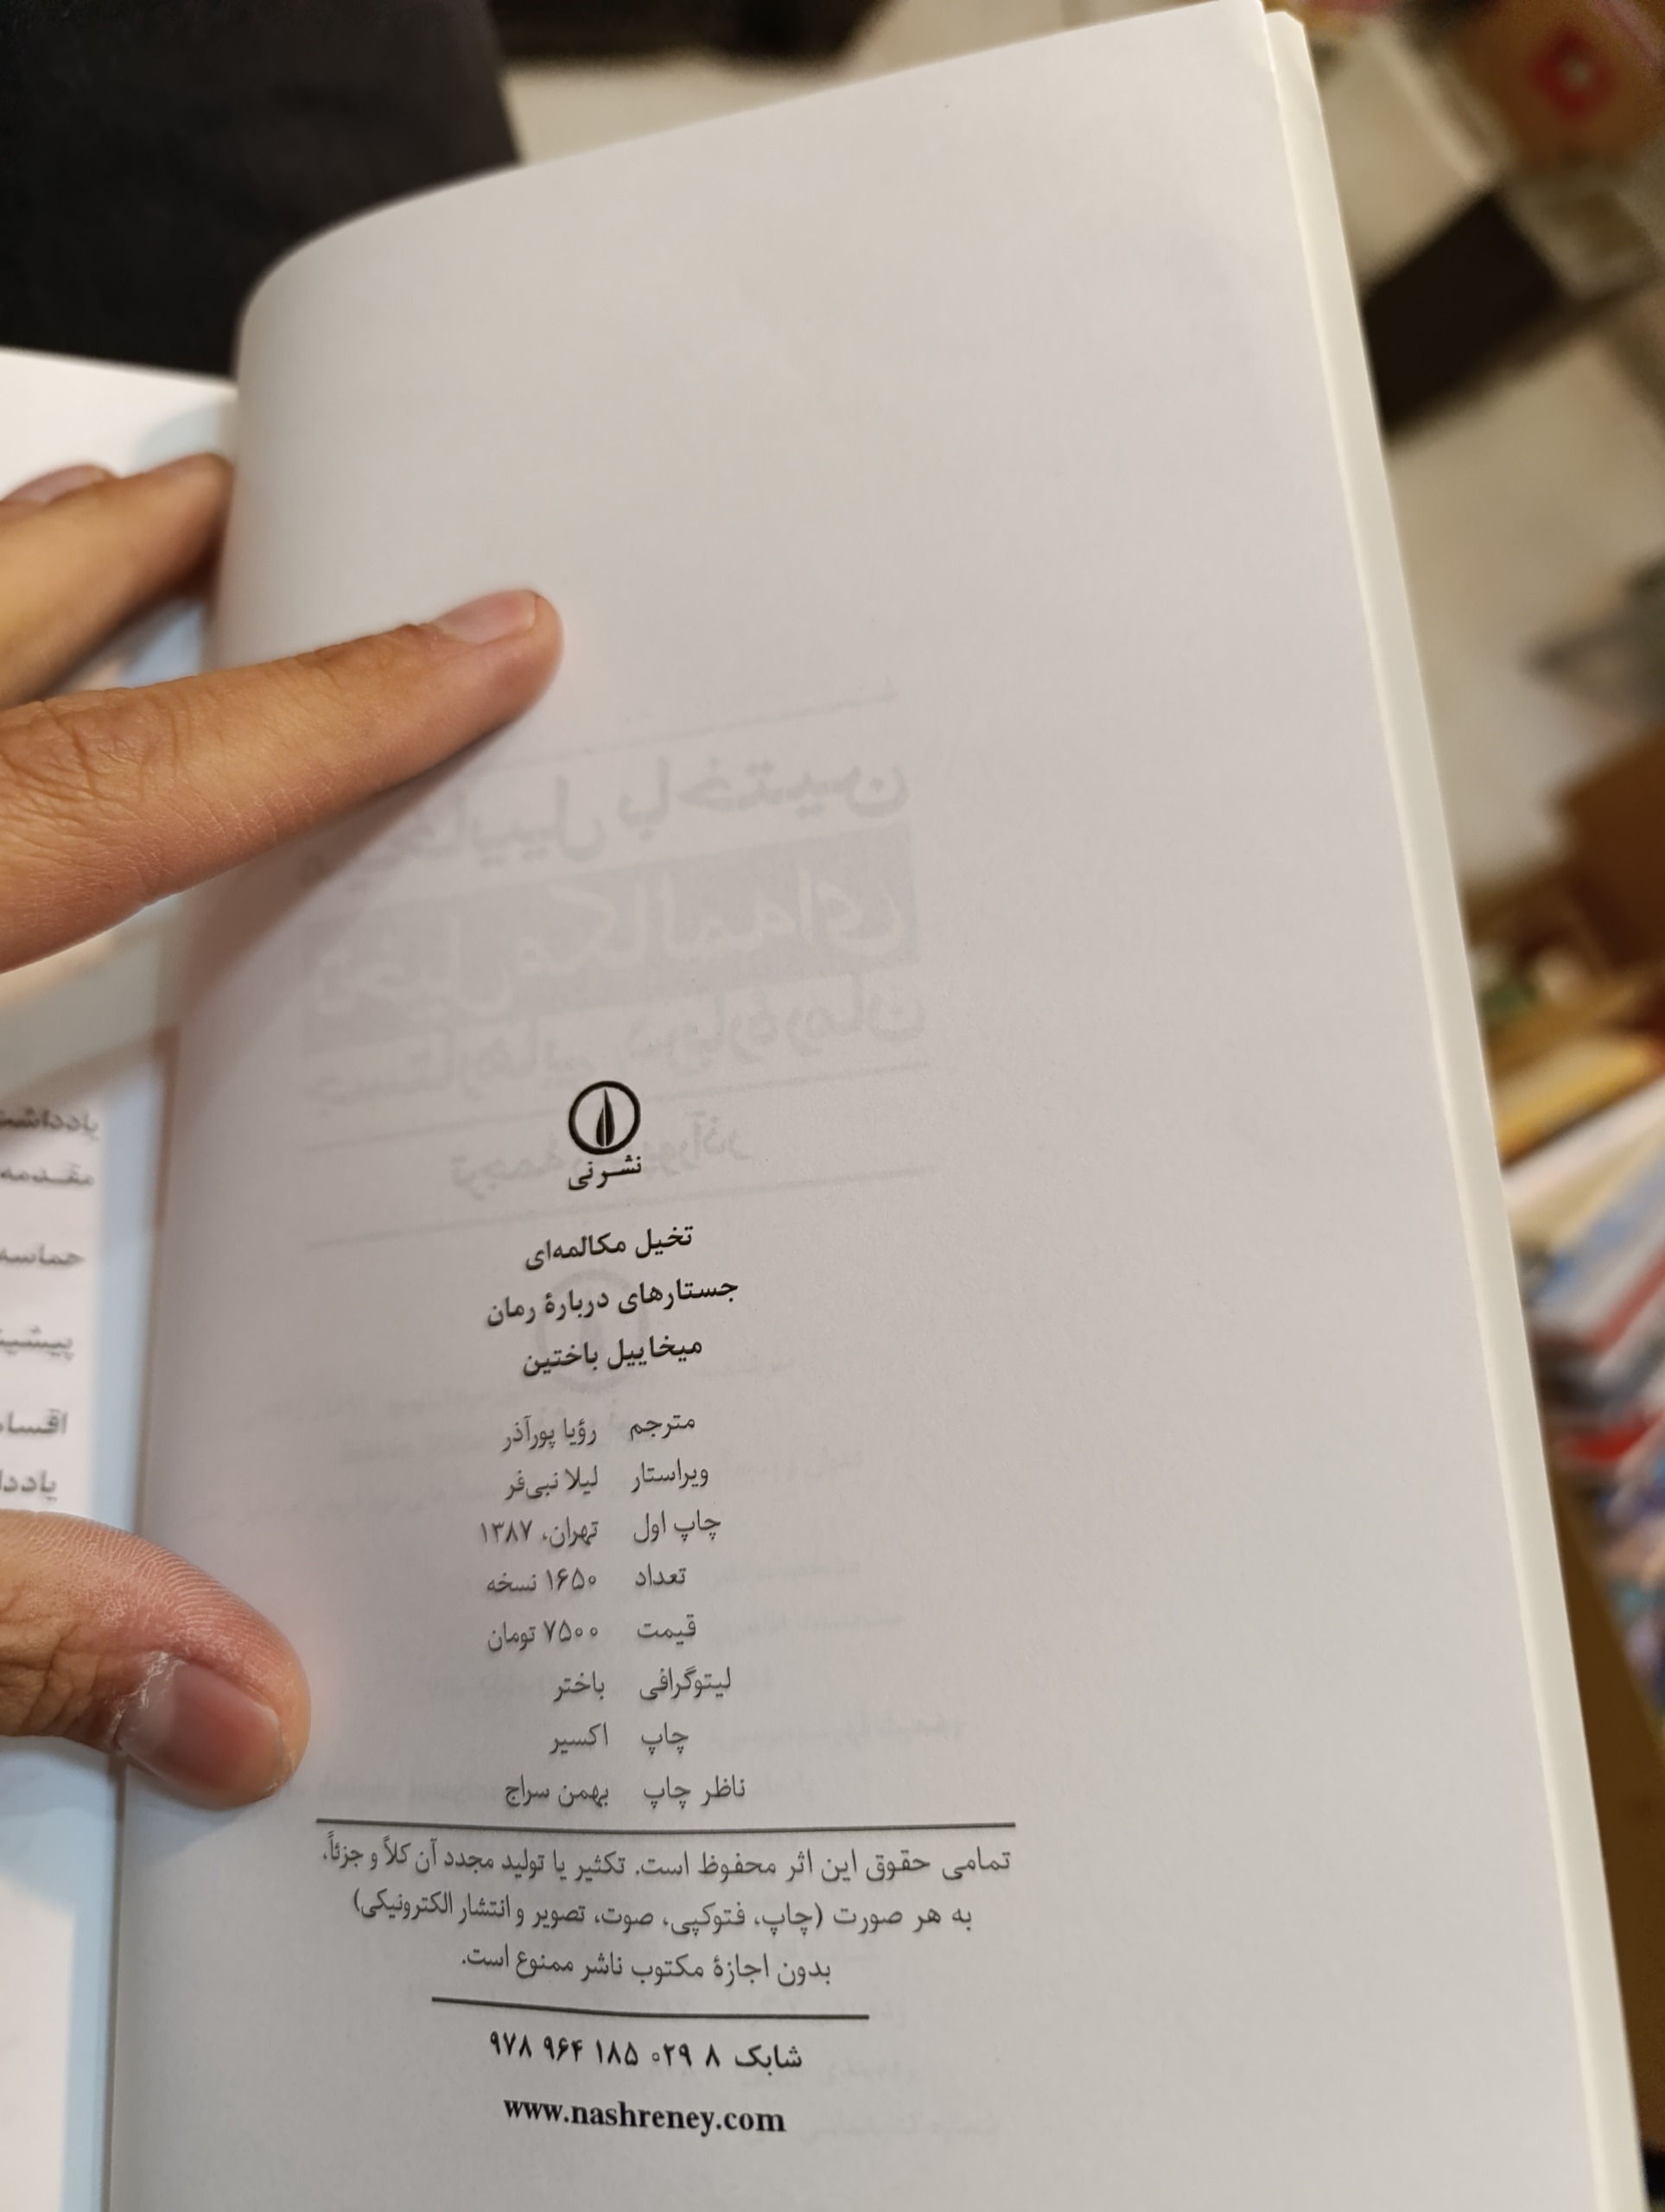 نشر نی
تخیل مکالمه‌ای
جستارهای دربارهٔ رمان
میخاییل باختین
مترجم رؤیا پورآذر
ویراستار لیلا نبی‌فر
چاپ اول تهران، ۱۳۸۷
تعداد ۱۶۵۰ نسخه
قیمت ۷۵۰۰ تومان
لیتوگرافی باختر
چاپ اکسیر
ناظر چاپ بهمن سراج
تمامی حقوق این اثر محفوظ است. تکثیر یا تولید مجدد آن کلاً و جزئاً،
به هر صورت (چاپ، فتوکپی، صوت، تصویر و انتشار الکترونیکی)
بدون اجازهٔ مکتوب ناشر ممنوع است.
شابک ۸ ۰۲۹ ۱۸۵ ۹۶۴ ۹۷۸
www.nashreney.com
مقدمه
حماسه